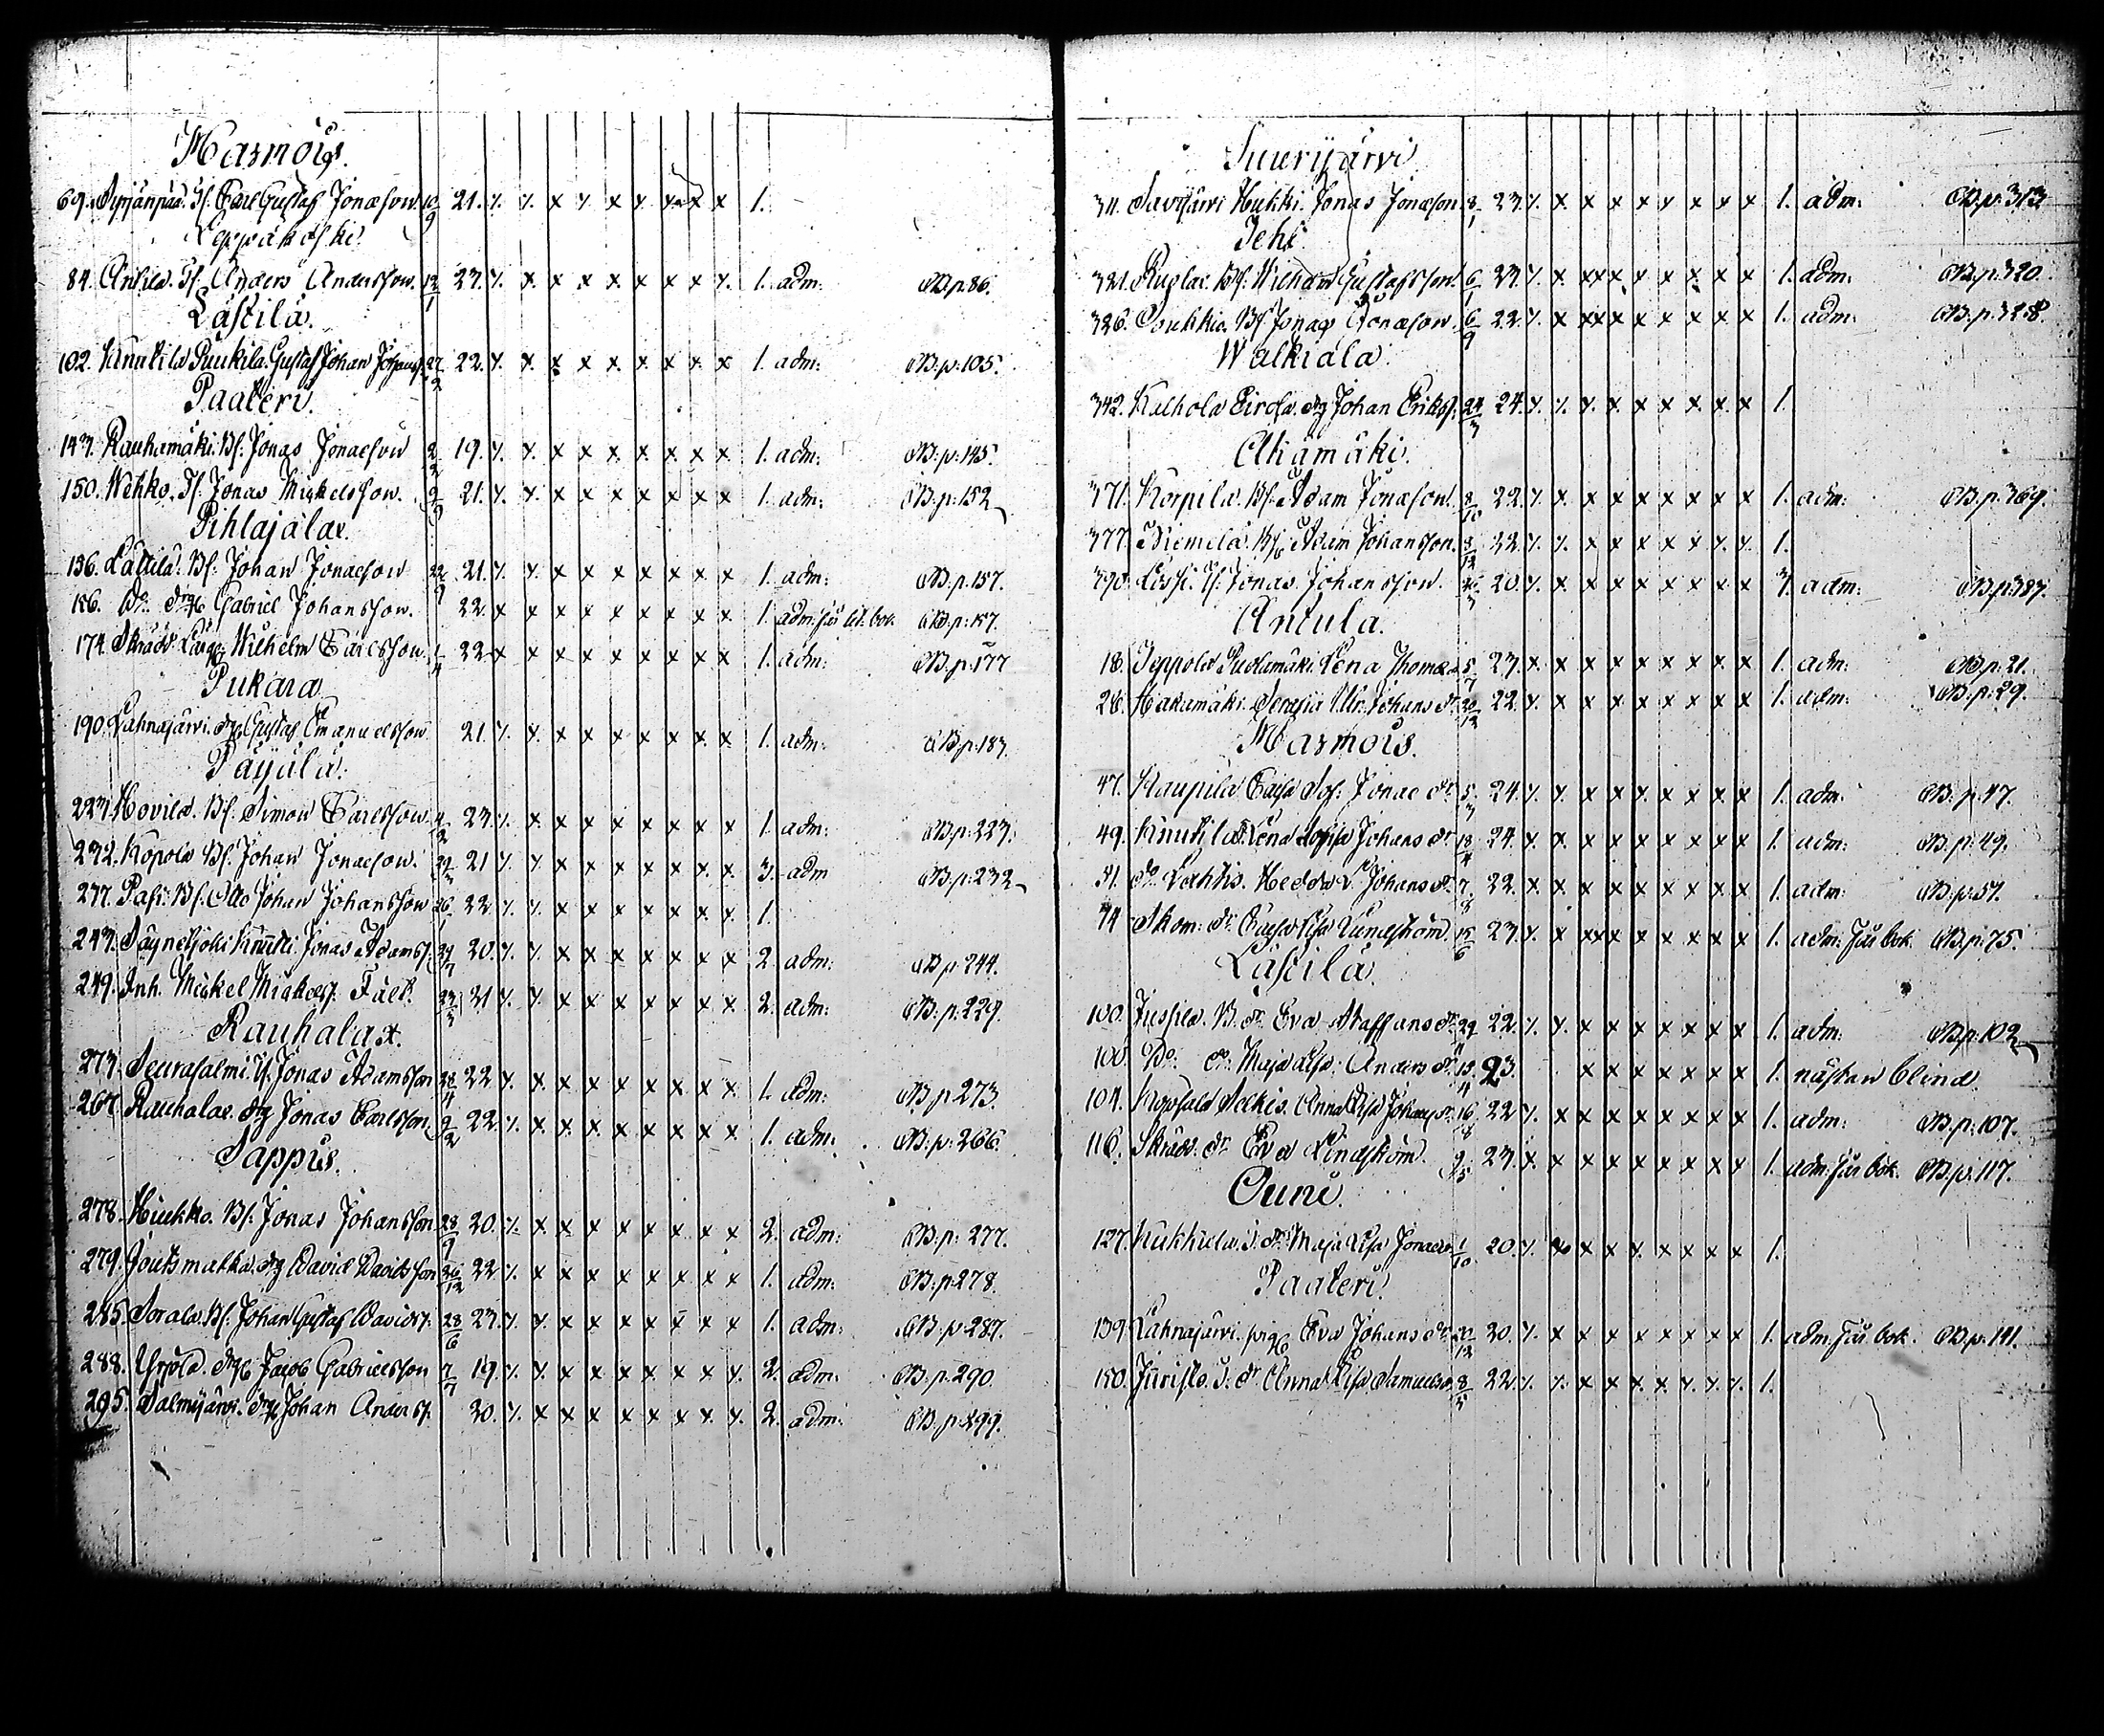 Marmois.
69. Sepänpää. Tf. Carl Gustaf Jonæson. 10/9 21. x x x x x x x x x 1.
Leppäkoski.
84. Anttila. Tf. Anders Andersson. 12/1 23. x x x x x x x x x 1. adm: CB. p. 86.
Lästilä.
102. Knuttila Puukila. Gustaf Johan Johanss. 27/2 22. x x x x x x x x x 1. adm: CB: p: 105.
Paateri.
143. Rauhamäki. Bf. Jonas Jonaeson 2/2 19. x x x x x x x x x 1. adm: CB: p: 145.
150. Wehko. Tf. Jonas Mickelsson. 21. x x x x x x x x x 1. adm: CB: p. 152
Pihlajalax.
156. Lättilä. Bf. Johan Jonaeson 22/9 21. x x x x x x x x x 1. adm: CB. p. 157.
156. Do. drg Gabriel Johansson. 22 x x x x x x x x x 1. adm: CB. p: 157.
174. Skrädd. Wilhelm Carlsson. 22 x x x x x x x x x 1. adm: CB. p. 177
Pukara
190. Lahnajärvi. drg Gustaf Emanuelsson 21. x x x x x x x x x 1. adm: CB. p. 187.
Päyälä.
223. Hovila. Bf. Simon Carlsson 4/2 23. x x x x x x x x x 1. adm: CB. p: 223:
232. Kopola Bf. Johan Jonaeson. 21 x x x x x x x x x 3. adm CB. p. 232
237. Pasi. Bf. Otto Johan Johansson 26 22 x x x x x x x x x 1.
243. Säynetjoki Knutti. Jonas Adamss. 20. x x x x x x x x x 2. adm: CB p. 244.
249. Inh. Mickel Mickelss. Fält. 21 x x x x x x x x x 2. adm: CB. p: 229.
Rauhalax.
273. Seurasalmi. Tf. Jonas Adamsson 22 x x x x x x x x x 1. adm: CB. p 273.
267. Rauhalax. drg Jonas Carlsson 9/2 22. x x x x x x x x x 1. adm: CB. p. 266.
Sappus.
278. Hiukko. Bf. Jonas Johansson 28/9 20. x x x x x x x x x 2. adm: CB. p: 277.
279. Joutsmatka. drg David Davidsson 26/12 22. x x x x x x x x x 1. adm: CB. p. 278.
285. Sorala. Bf. Johan Gustaf Davidss. 28/6 23. x x x x x x x x x 1. adm: CB. p. 287.
288. Yrjölä. drg Jacob Gabrielsson 7/7 19. x x x x x x x x x 2. adm: CB. p. 290.
295. Salmijärvi. drg Johan Anderss. 20. x x x x x x x x x 2. adm: CB. p. 299.
Suurijärvi
311. Savijärvi Hukki. Jonas Jonæson. 8/1 23. x x x x x x x x x 1. adm: CB. p: 313
Tehi.
321. Bf. Wilhelm Gustafsson. 6/1 23. x x xx x x x x x x 1. adm: CB. p: 320.
326. Bf. Jonas Jonæson. 6/9 22. x x xx x x x x x x 1. adm: CB. p: 328.
Walkiala.
342. Kalhola Pirola. drg Johan Erikss. 24/3 24. x x x x x x x x x 1.
Ohamäki.
371. Korpila. Bf. Adam Jonæson. 8/10 22. x x x x x x x x x 1. adm: CB. p. 369.
377. Niemelä. Bf. Adam Johansson. 8/12 22. x x x x x x x x x 1.
390. Tf. Jonas Johansson. 20. x x x x x x x x x 3. adm: CB. p. 387.
Antula.
18. Jeppola Puolamäki. Lena Thomæd. 5/7 23. x x x x x x x x x 1. adm: CB p: 21.
26. Hakamäki. Serafia Ulr. Johans dr. 22. x x x x x x x x x 1. adm: CB. p. 29.
Marmois.
47. Kaupila Cajsa Sof. Jonae dr. 5/3 24. x x x x x x x x x 1. adm: CB. p. 47.
49. Knuttila. Lena Sofia Johans dr 18/4 24. x x x x x x x x x 1. adm: CB. p: 49.
51. do Lahtis. Hedda Johans dr. 7/8 22. x x x x x x x x x 1. adm: CB. p. 51.
74 Skom: dr. Cajsa Lisa Lundström 15/6 23. x x xx x x x x x x 1. adm: Jus bok. CB. p. 75.
Lästilä
100. Juspila. B. dr. Eva Staffans dr. 29/11 22. x x x x x x x x x 1. adm. CB. p. 102
100. Do. dr. Maja Lisa Anders dr. 19/4 23. x x x x x x x 1. nästan blind.
104. Anna Lisa Johans dr. 16/8 22. x x x x x x x x x 1. adm: CB. p. 107.
116. Skrädd. dr. Eva Lindström. 9/5 23. x x x x x x x x x 1. adm: Jus bok. CB. p. 117.
Ouni.
127. Kukkila. T. dr. Maja Lisa Jonaedr. 1/10 20. x x x x x x x x x 1.
Paateri.
139. Lahnajärvi. pig. Eva Johans dr. 20/12 20. x x x x x x x x x 1. adm: Jus bok. CB. p. 141.
150. Juristo. T. dr. Anna Lisa Samuelsdr. 8/5 22. x x x x x x x x x 1.